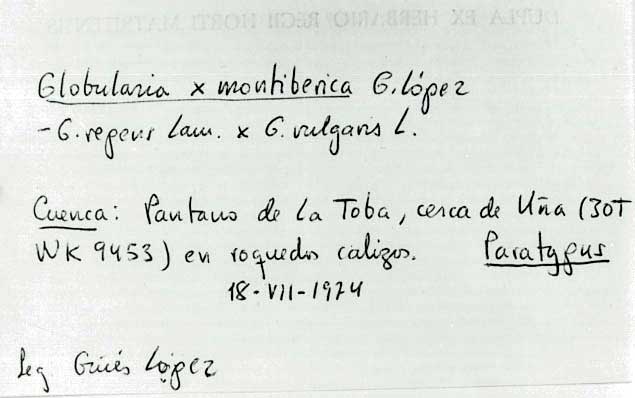 DUPLA EX HERBARIO REGII HORTI MATRITENSIS
Globularia x montiberica G. López
- G. repens Lam. x G. vulgaris L.
Cuenca: Pantano de La Toba, cerca de Uña (30T
WK 9453) en roquedos calizos. Paratypus
18-VII-1974
Leg Ginés López